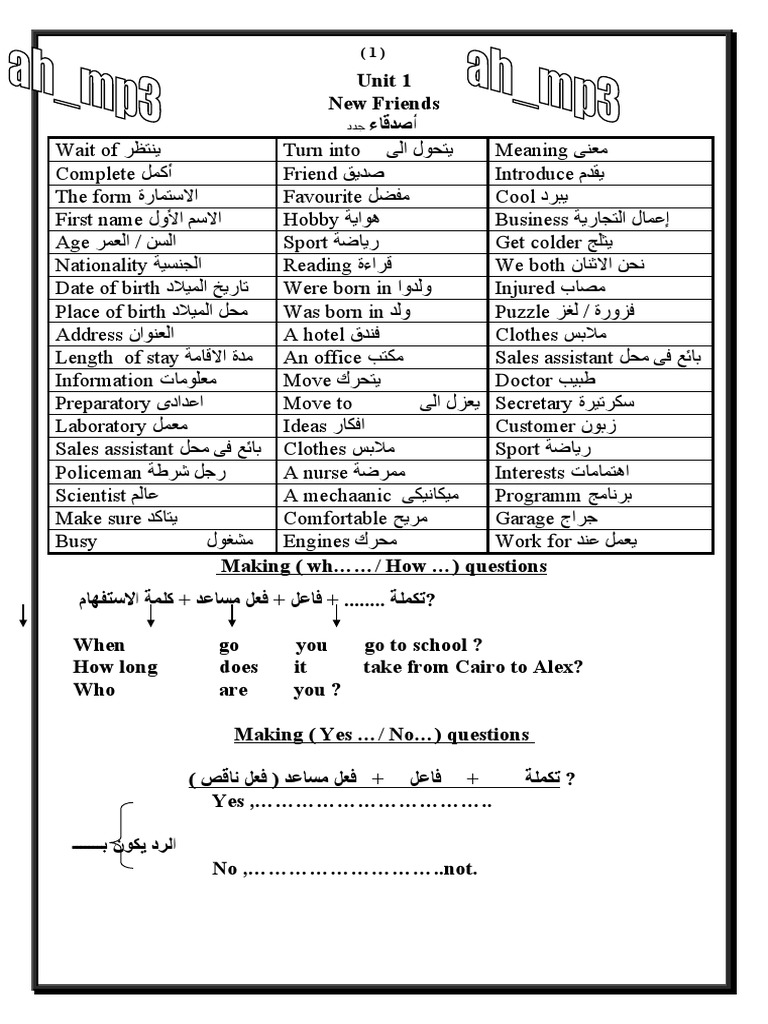 (1)
ah_mp3 ah_mp3
Unit 1
New Friends
أصدقاء جدد
Wait of ينتظر Turn into يتحول الى Meaning معنى
Complete أكمل Friend صديق Introduce يقدم
The form الاستمارة Favourite مفضل Cool يبرد
First name الاسم الأول Hobby هواية Business إعمال التجارية
Age السن / العمر Sport رياضة Get colder يثلج
Nationality الجنسية Reading قراءة We both نحن الاثنان
Date of birth تاريخ الميلاد Were born in ولدوا Injured مصاب
Place of birth محل الميلاد Was born in ولد Puzzle فزورة / لغز
Address العنوان A hotel فندق Clothes ملابس
Length of stay مدة الاقامة An office مكتب Sales assistant بائع فى محل
Information معلومات Move يتحرك Doctor طبيب
Preparatory اعدادى Move to يعزل الى Secretary سكرتيرة
Laboratory معمل Ideas افكار Customer زبون
Sales assistant بائع فى محل Clothes ملابس Sport رياضة
Policeman رجل شرطة A nurse ممرضة Interests اهتمامات
Scientist عالم A mechaanic ميكانيكى Programm برنامج
Make sure يتاكد Comfortable مريح Garage جراج
Busy مشغول Engines محرك Work for يعمل عند
Making ( wh……/ How …) questions
كلمة الاستفهام + فعل مساعد + فاعل + ........ تكملة?
When go you go to school ?
How long does it take from Cairo to Alex?
Who are you ?
Making ( Yes …/ No…) questions
( فعل مساعد ( فعل ناقص + فاعل + تكملة ?
Yes ,……………………………..
الرد يكون بـــــــ
No ,………………………..not.